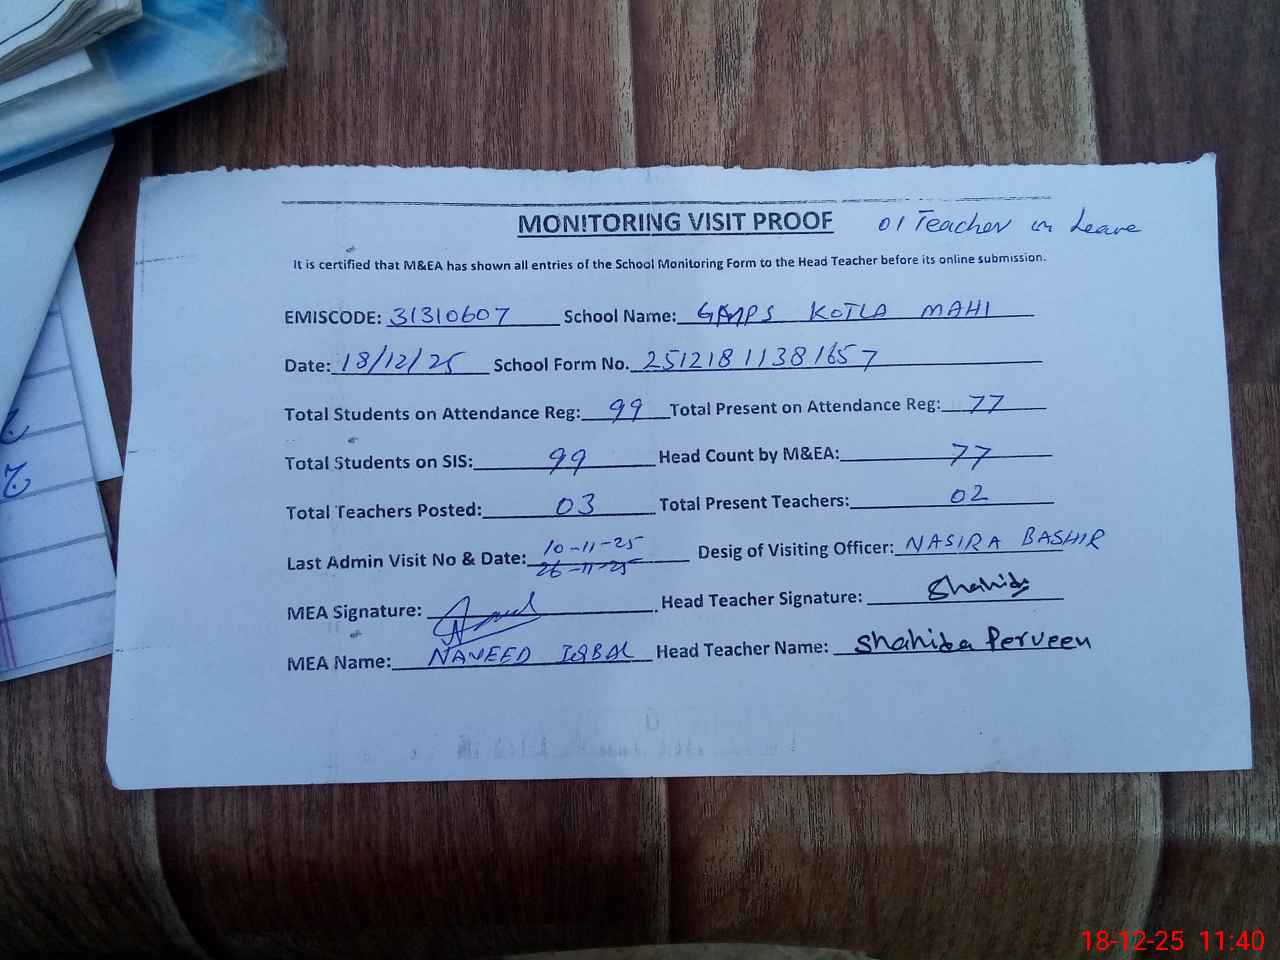 MONITORING VISIT PROOF 01 Teacher on Leave
It is certified that M&EA has shown all entries of the School Monitoring Form to the Head Teacher before its online submission.
EMISCODE: 31310607 School Name: GMPS KOTLA MAHI
Date: 18/12/25 School Form No. 25121811381657
Total Students on Attendance Reg: 99 Total Present on Attendance Reg: 77
Total Students on SIS: 99 Head Count by M&EA: 77
Total Teachers Posted: 03 Total Present Teachers: 02
Last Admin Visit No & Date: 10-11-25 Desig of Visiting Officer: NASIRA BASHIR
26-11-25
MEA Signature: Head Teacher Signature: Shahida
MEA Name: NAVEED IQBAL Head Teacher Name: Shahida Perveen
18-12-25 11:40